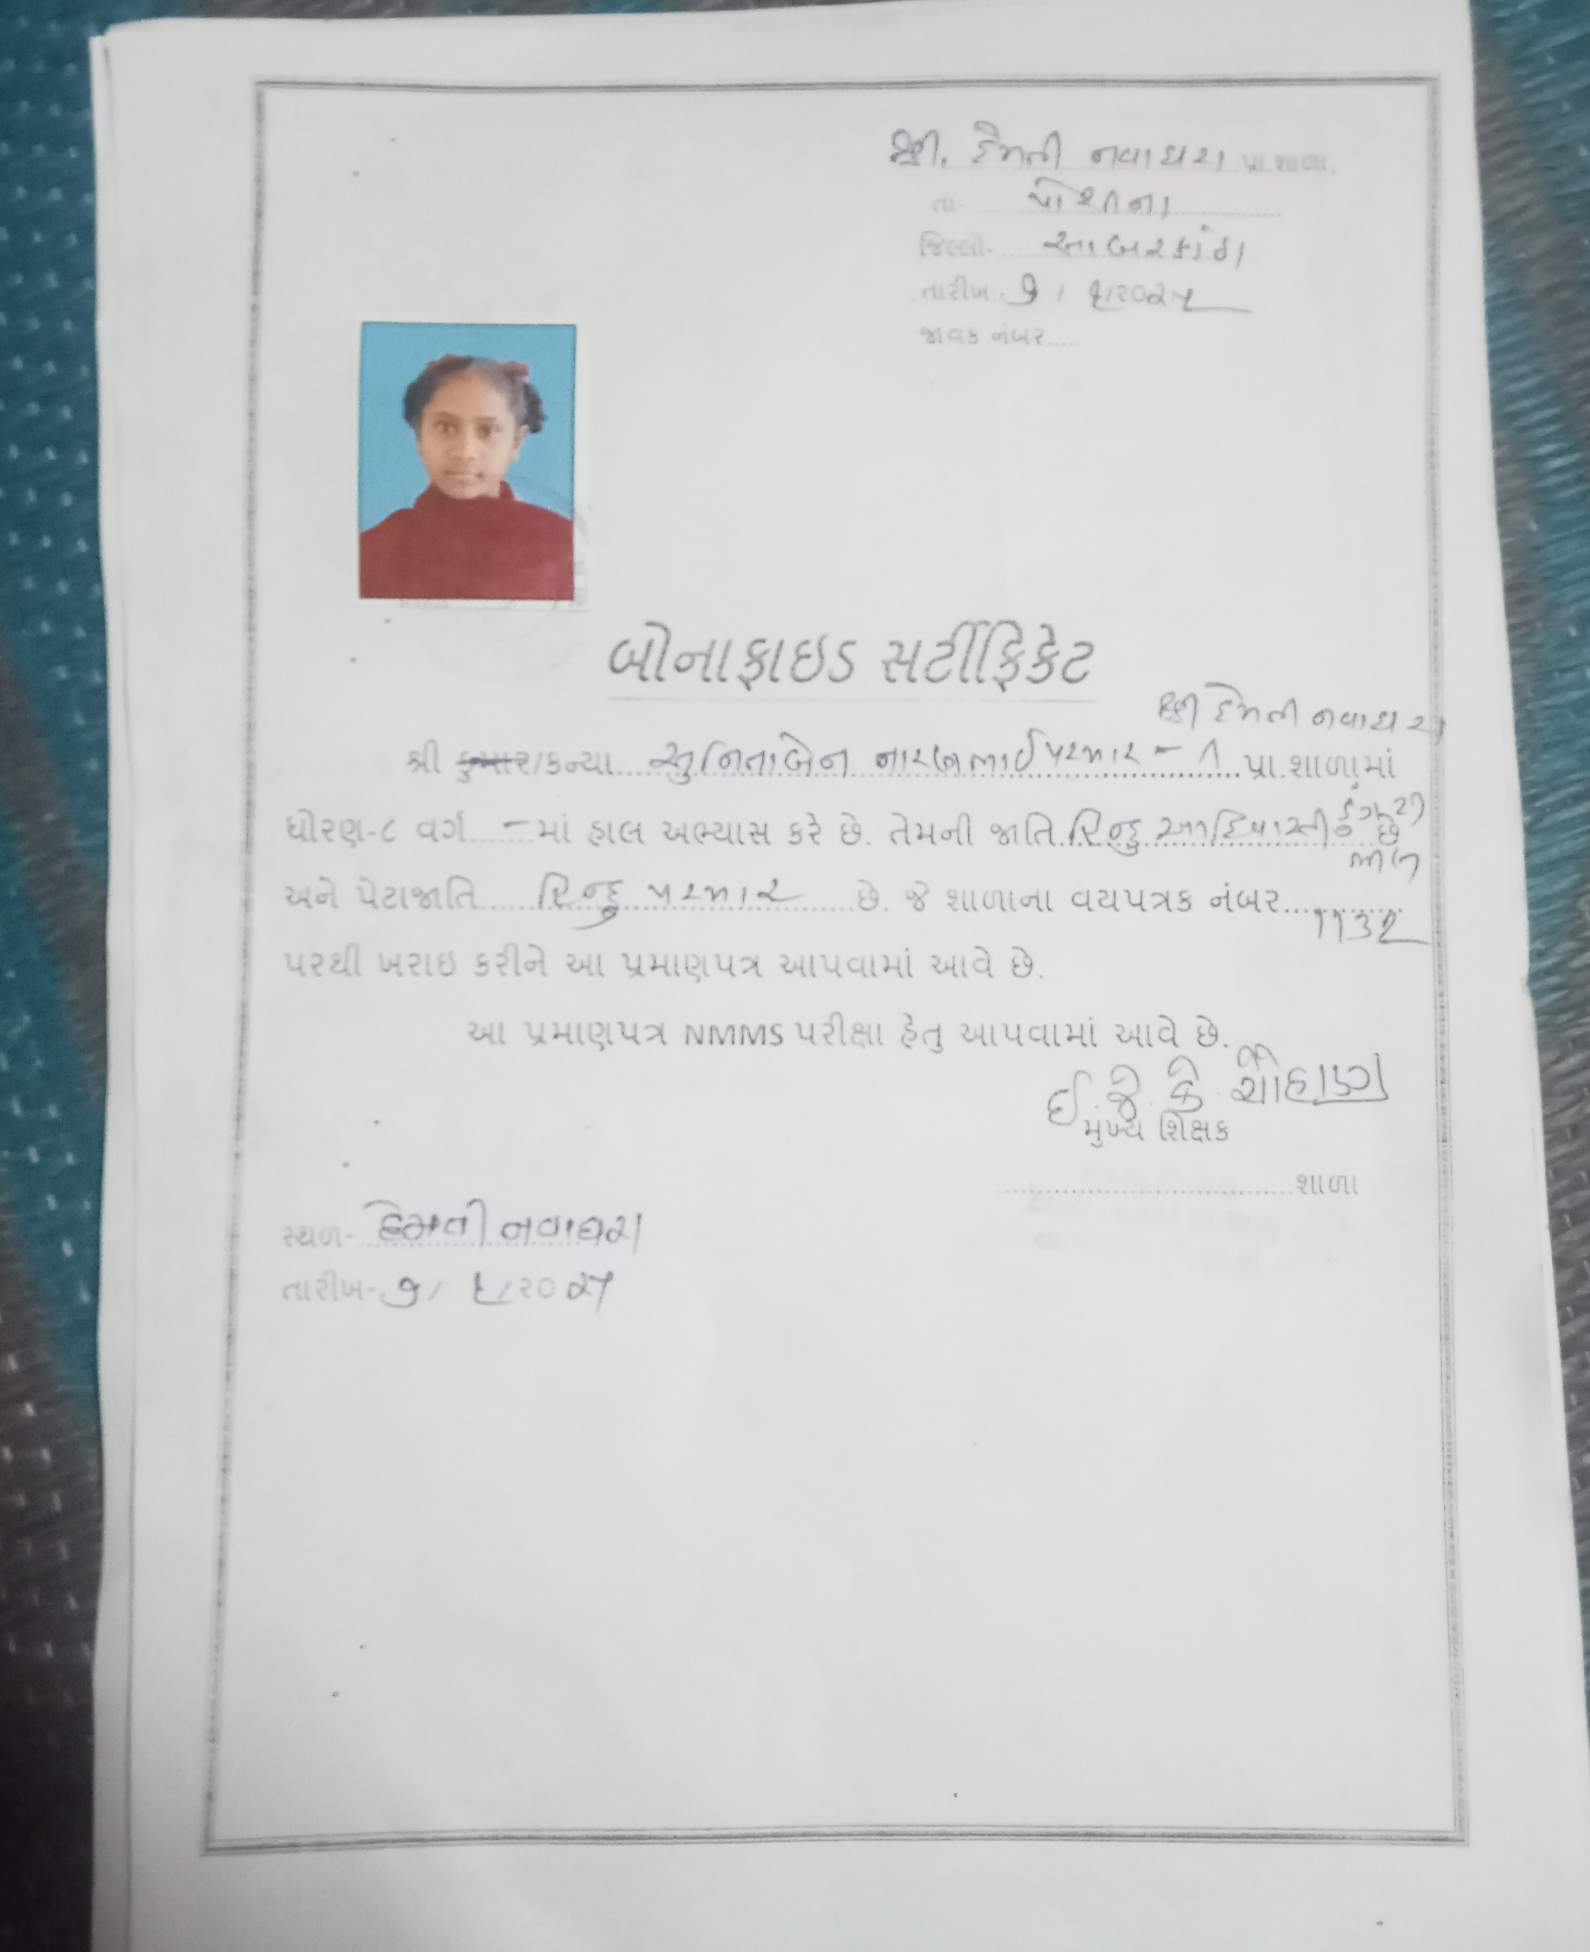 શ્રી. દેમતી નવાઘરા પ્રા શાળા,
તા- પોશીના
જિલ્લો- સાબરકાંઠા
તારીખ. 9 / ૬/૨૦૨૫
જાવક નંબર.....
બોનાફાઇડ સર્ટીફિકેટ
શ્રી દેમતી નવાઘરા
શ્રી કુમાર/કન્યા...સુનિતાબેન નારણભાઈ પરમાર - 1 પ્રા.શાળામાં
ધોરણ-૮ વર્ગ.....-માં હાલ અભ્યાસ કરે છે. તેમની જાતિ હિન્દુ આદિવાસી ડુંગરી છે
ભીલ
અને પેટાજાતિ..... હિન્દુ પરમાર .....છે. જે શાળાના વયપત્રક નંબર...1132
પરથી ખરાઇ કરીને આ પ્રમાણપત્ર આપવામાં આવે છે.
આ પ્રમાણપત્ર NMMS પરીક્ષા હેતુ આપવામાં આવે છે.
ઈ.જે.કે.ચૌહાણ
મુખ્ય શિક્ષક
.....શાળા
સ્થળ- દેમતી નવાઘરા
તારીખ- 9/ ૬/૨૦૨૫